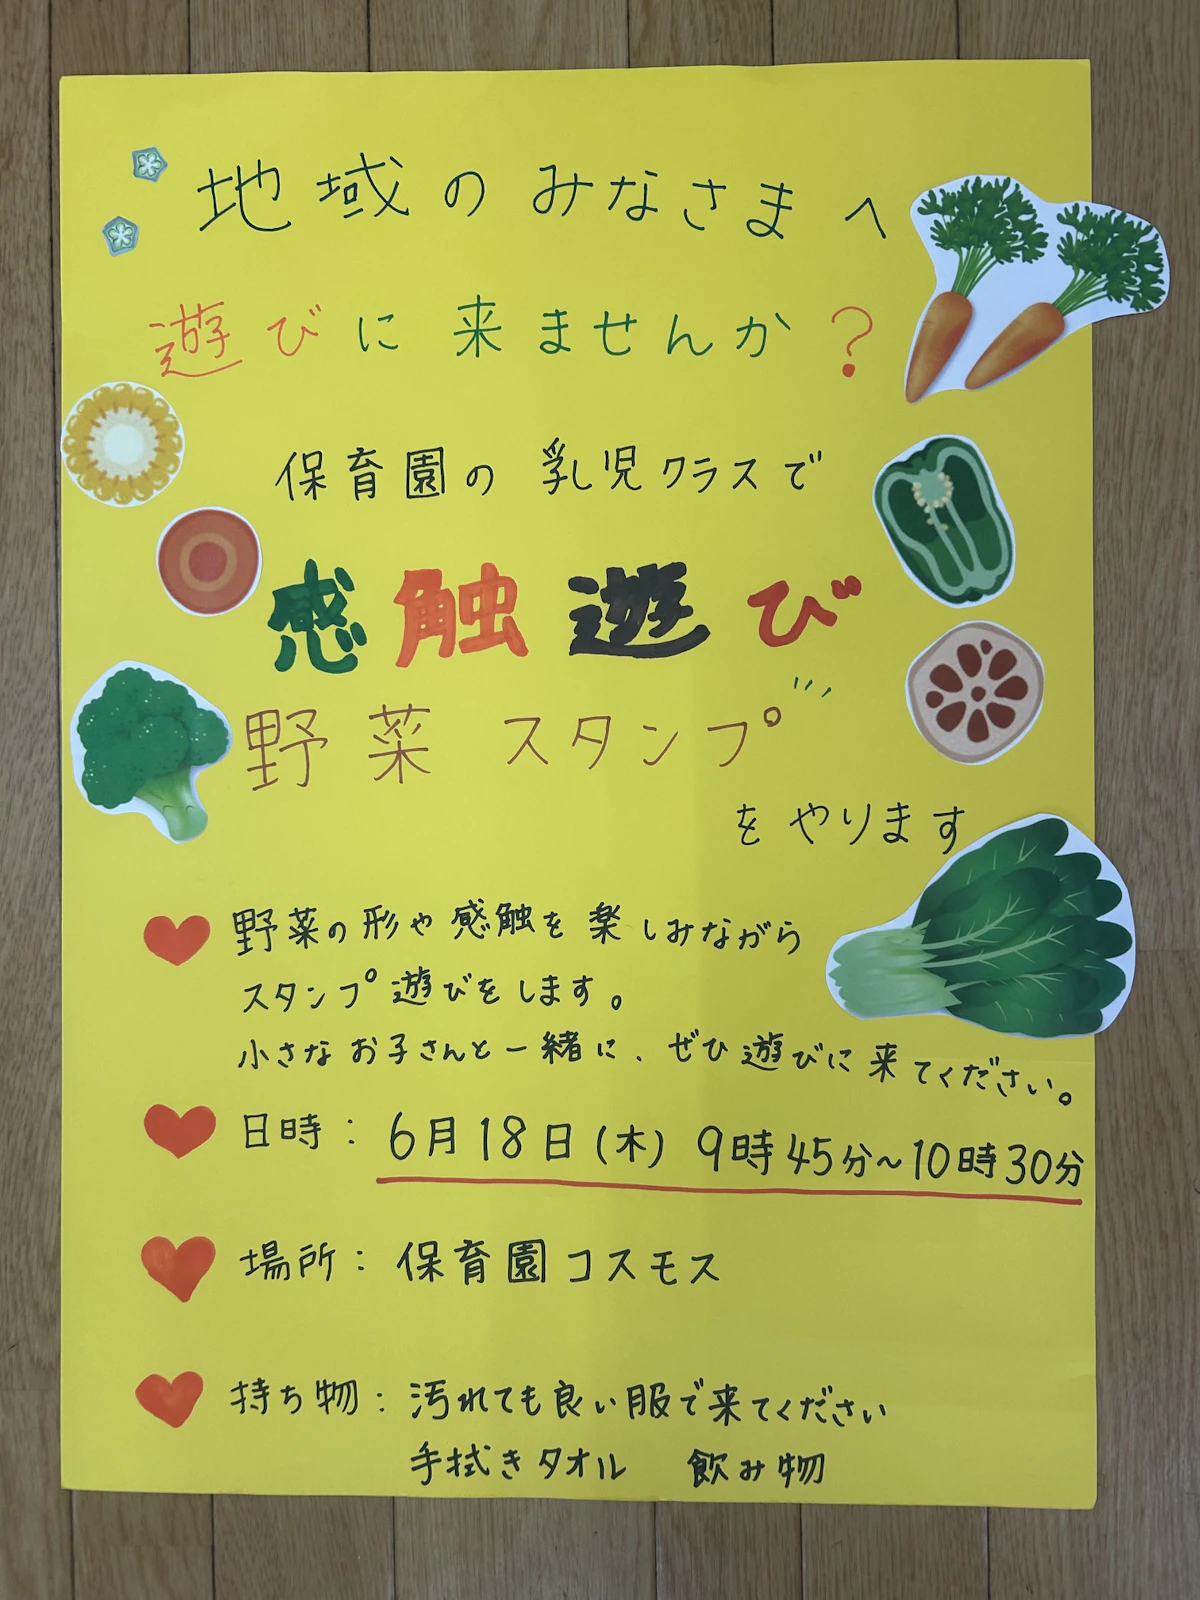 地域のみなさまへ
遊びに来ませんか?
保育園の乳児クラスで
感触遊び
野菜スタンプ
をやります
野菜の形や感触を楽しみながら
スタンプ遊びをします。
小さなお子さんと一緒に、ぜひ遊びに来てください。
日時:6月18日(木) 9時45分~10時30分
場所:保育園コスモス
持ち物:汚れても良い服で来てください
手拭きタオル 飲み物